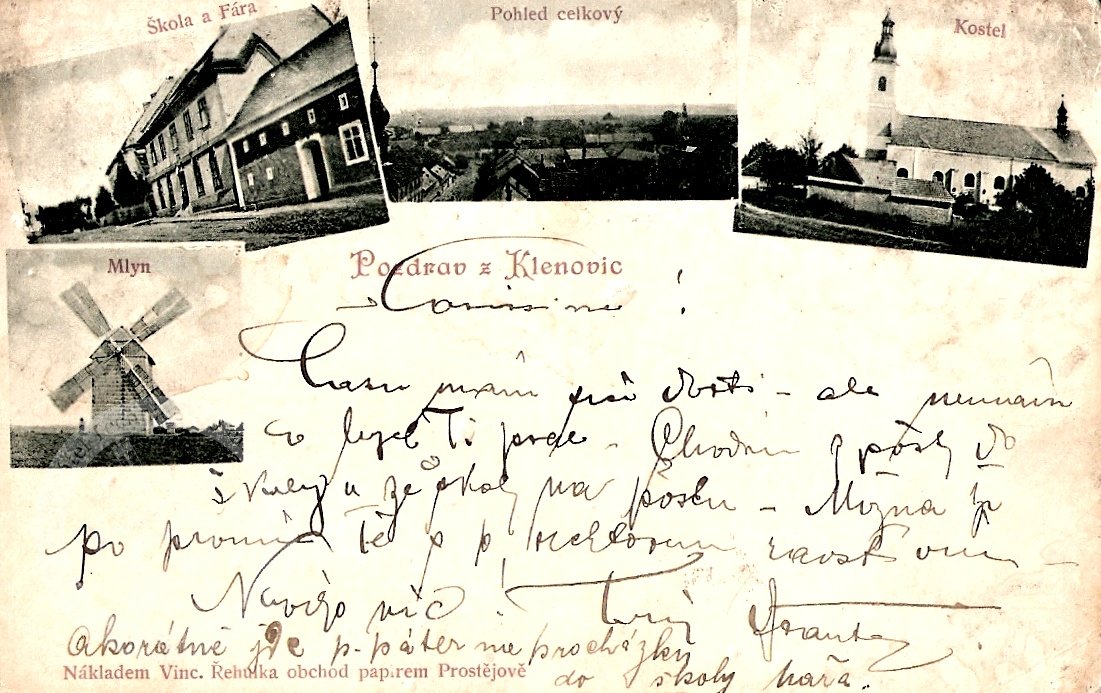 Škola a Fára
Pohled celkový
Kostel
Mlyn
Pozdrav z Klenovic
Carissime!
Času mám dosti – ale nemám
co Ti – Chodím s pošty do
školy a ze školy na poštu – Možná že
po Tě s p. rectorem
Na víc! Tvůj Franta
akorátně jde p. páter na procházky
do školy
Nákladem Vinc. Řehulka obchod papírem Prostějově